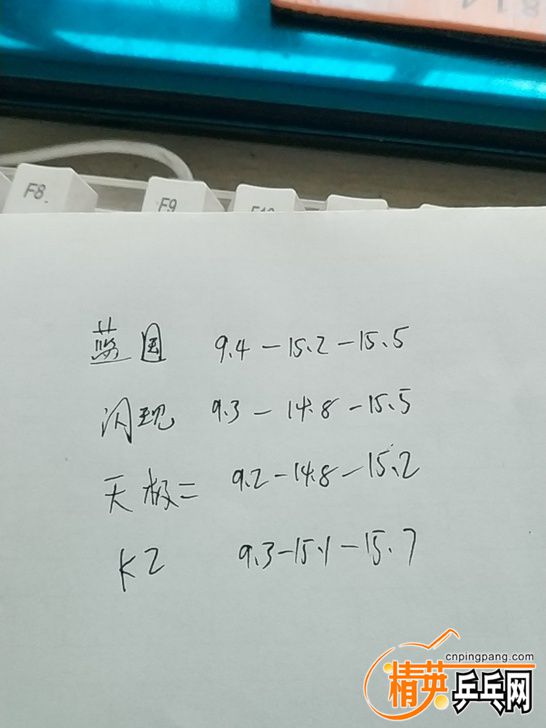 F8
F9
F10
蓝国 9.4-15.2-15.5
闪现 9.3-14.8-15.5
天极二 9.2-14.8-15.2
K2 9.3-15.1-15.7
cnpingpang.com
精英乒乓网